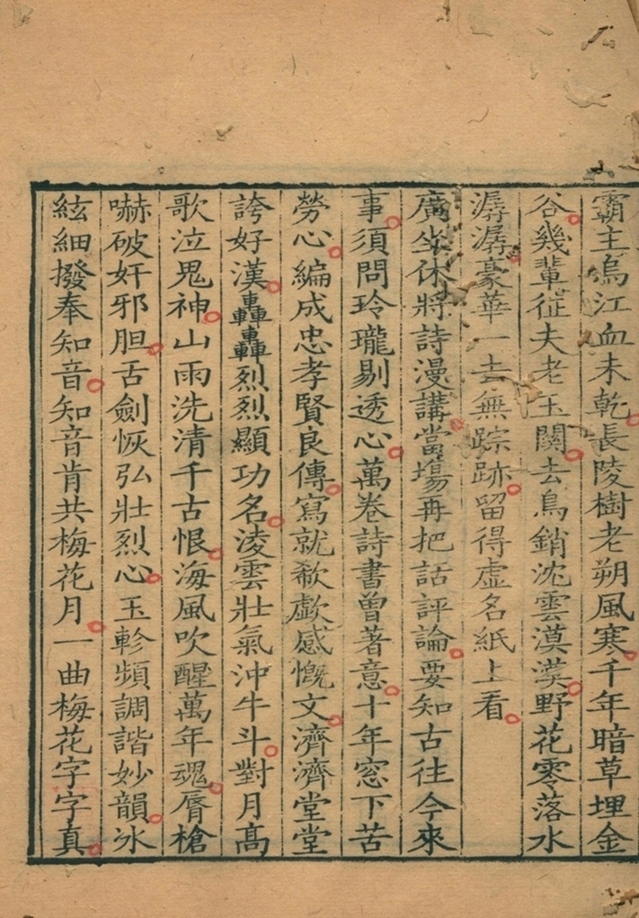 霸主烏江血未乾長陵樹老朔風寒千年暗草埋金
谷幾輩征夫老玉關去鳥銷沈雲漠漠野花零落水
潺潺豪華一去無踪跡留得虛名紙上看
廣坐休將詩漫講當場再把話評論要知古往今來
事須問玲瓏剔透心萬卷詩書曾著意十年窓下苦
勞心編成忠孝賢良傳寫就欷歔感慨文濟濟堂堂
誇好漢轟轟烈烈顯功名淩雲壯氣沖牛斗對月高
歌泣鬼神山雨洗清千古恨海風吹醒萬年魂唇槍
嚇破奸邪胆舌劍恢弘壯烈心玉軫頻調諧妙韻冰
絃細撥奉知音知音肯共梅花月一曲梅花字字真